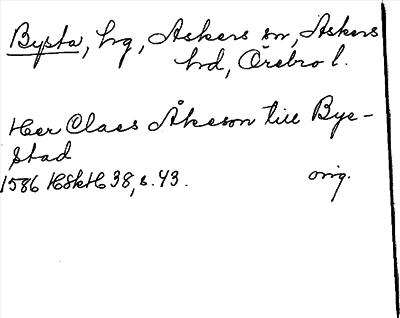 Bysta, hg, Askers sn, Askers
hd, Örebro l.
Her Claes Åkeson till Bye-
stad
1586 HSkH 38, s. 43. orig.